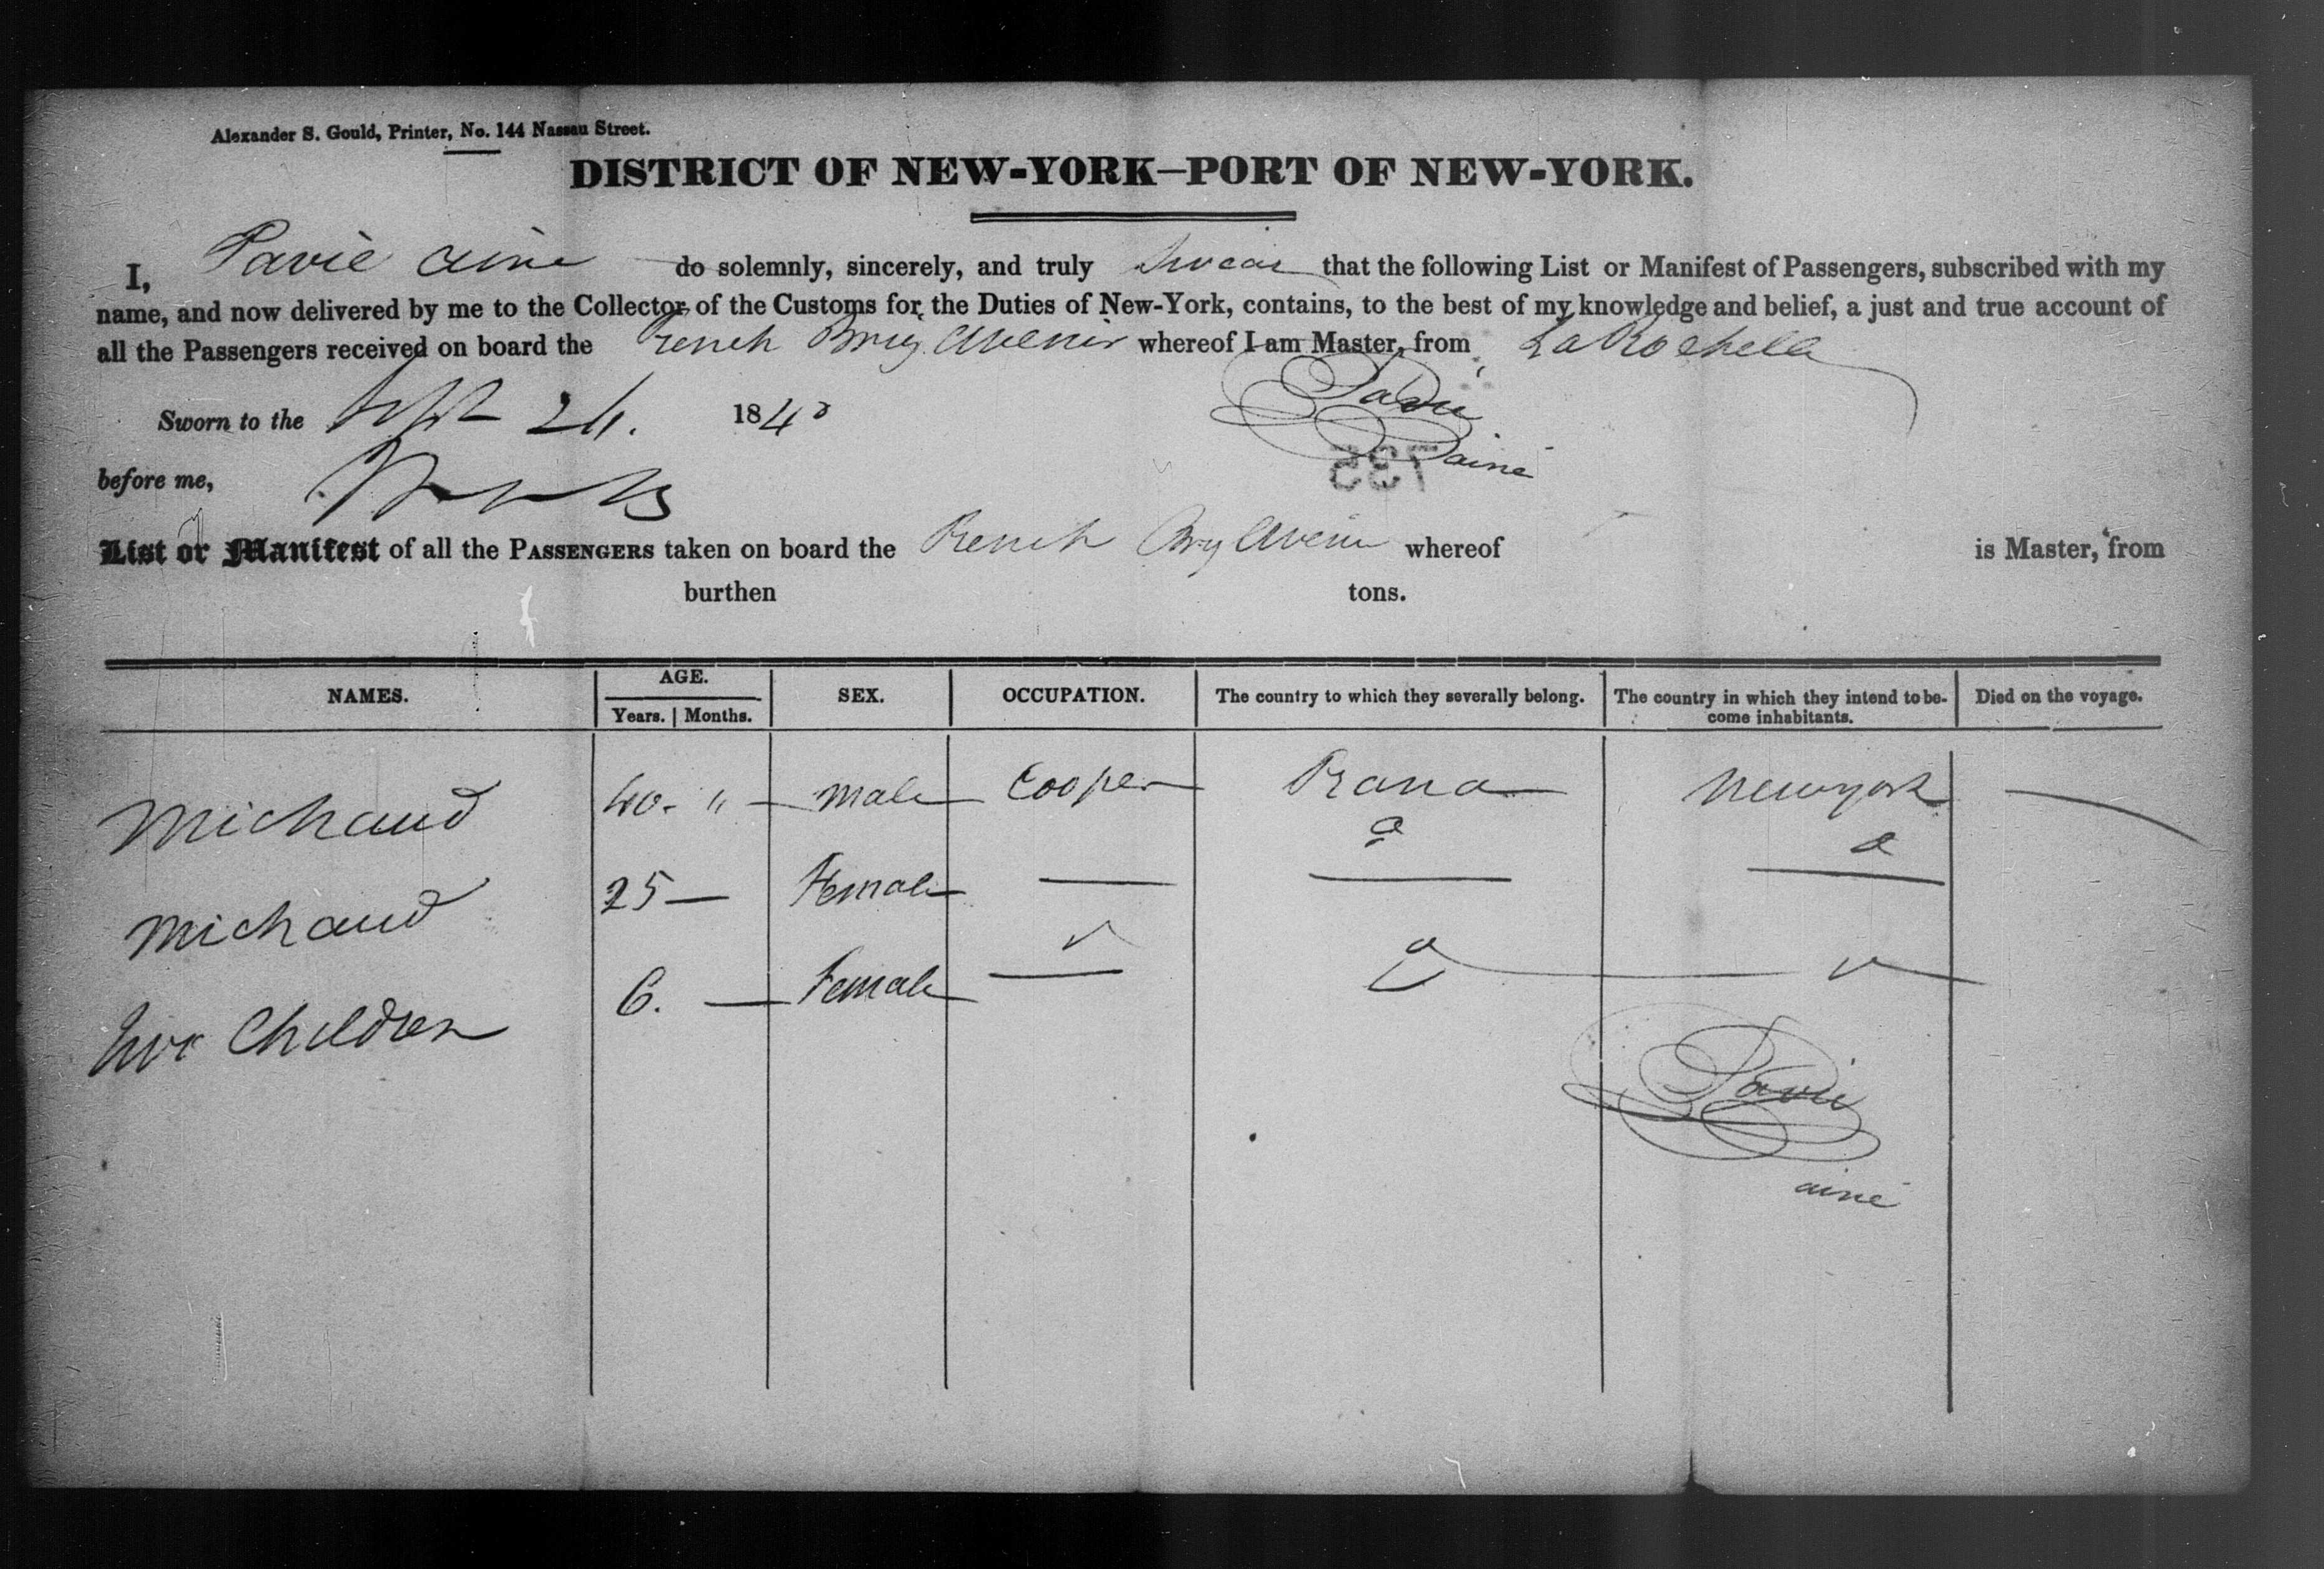 Alexander S. Gould, Printer, No. 144 Nassau Street.
DISTRICT OF NEW-YORK—PORT OF NEW-YORK.
I, Pavie ainé do solemnly, sincerely, and truly Swear that the following List or Manifest of Passengers, subscribed with my
name, and now delivered by me to the Collector of the Customs for the Duties of New-York, contains, to the best of my knowledge and belief, a just and true account of
all the Passengers received on board the French Brig Avenir whereof I am Master, from La Rochelle
Sworn to the Sept 24. 184 Pavie
before me, ainé
List or Manifest of all the PASSENGERS taken on board the French Brig Avenir whereof is Master, from
burthen tons.
NAMES. AGE. Years. Months. SEX. OCCUPATION. The country to which they severally belong. The country in which they intend to become inhabitants. Died on the voyage.
Michaud 40. " male Cooper France Newyork
Michaud 25 — Female —
Two Children 6. — Female
Pavie
ainé